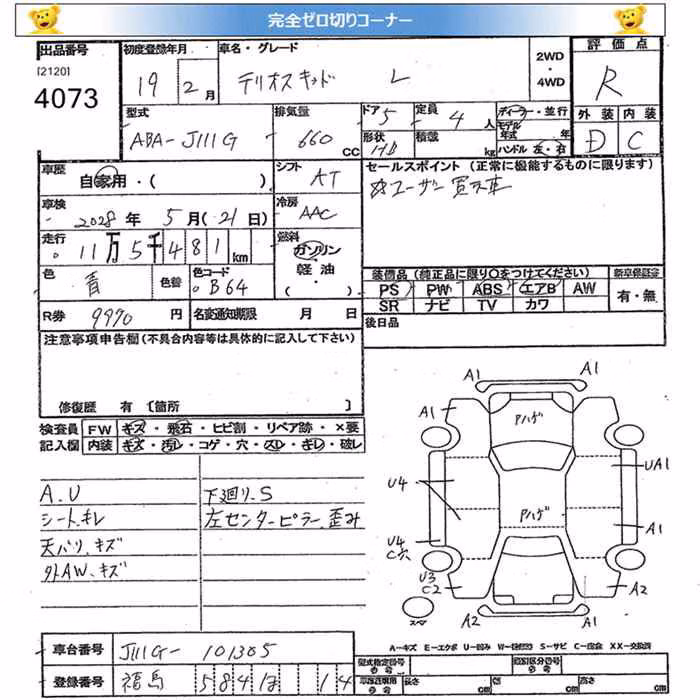 完全ゼロ切りコーナー
出品番号
[2120]
4073
初度登録年月
19 2月
車名・グレード
テリオスキッド L
2WD
・
4WD
評価点
R
外装 内装
D C
型式
ABA-J111G
排気量
660 cc
ドア 5
形状
定員 4 人
積載 kg
ディーラー・並行
モデル
年式 年
ハンドル 左・右
車歴
自家用・( )
シフト
AT
セールスポイント (正常に機能するものに限ります)
☆ユーザー買取車
車検
2028年 5月(21日)
冷房
AAC
走行
11万5千481km
燃料
ガソリン
軽油
・
( )
色
青
色替
色コード
B64
装備品(純正品に限り○をつけてください)
PS PW ABS エアB AW
SR ナビ TV カワ
新車保証書
有・無
R券 9970 円
名変通知期限 月 日
後日品
注意事項申告欄(不具合内容等は具体的に記入して下さい)
修復歴 有 〔箇所 〕
検査員
記入欄
FW キズ・飛石・ヒビ割・リペア跡・×要
内装 キズ・汚レ・コゲ・穴・スレ・キレ・破レ
A.U
シート.キレ
天バリ.キズ
外AW.キズ
下廻り.S
左センターピラー.歪み
A1
A1
A1
Aハゲ
Aハゲ
U4
UA1
U4
C穴
A1
U3
C2
A2
A2
A1
スペア
A-キズ E-エクボ U-凹み S-サビ C-腐食 XX-交換済
車台番号
J111G-101305
登録番号
福島 584 は 14
型式指定番号
類別区分番号
長さ cm
幅 cm
高さ cm